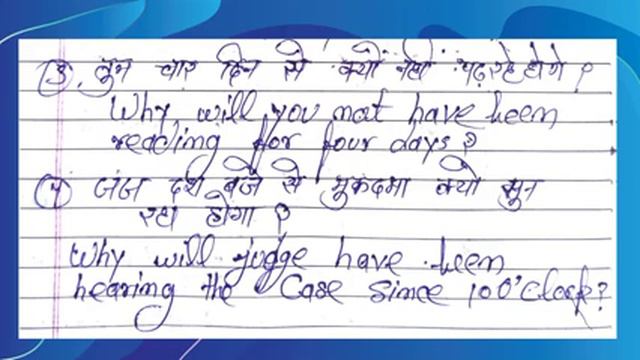 (3). तुम चार दिन से क्यों नहीं पढ़ रहे होगे ?
Why will you not have been
reading for four days?
(4) जज दश बजे से मुकदमा क्यों सुन
रहा होगा ?
Why will judge have been
hearing the Case Since 10 O'Clock?